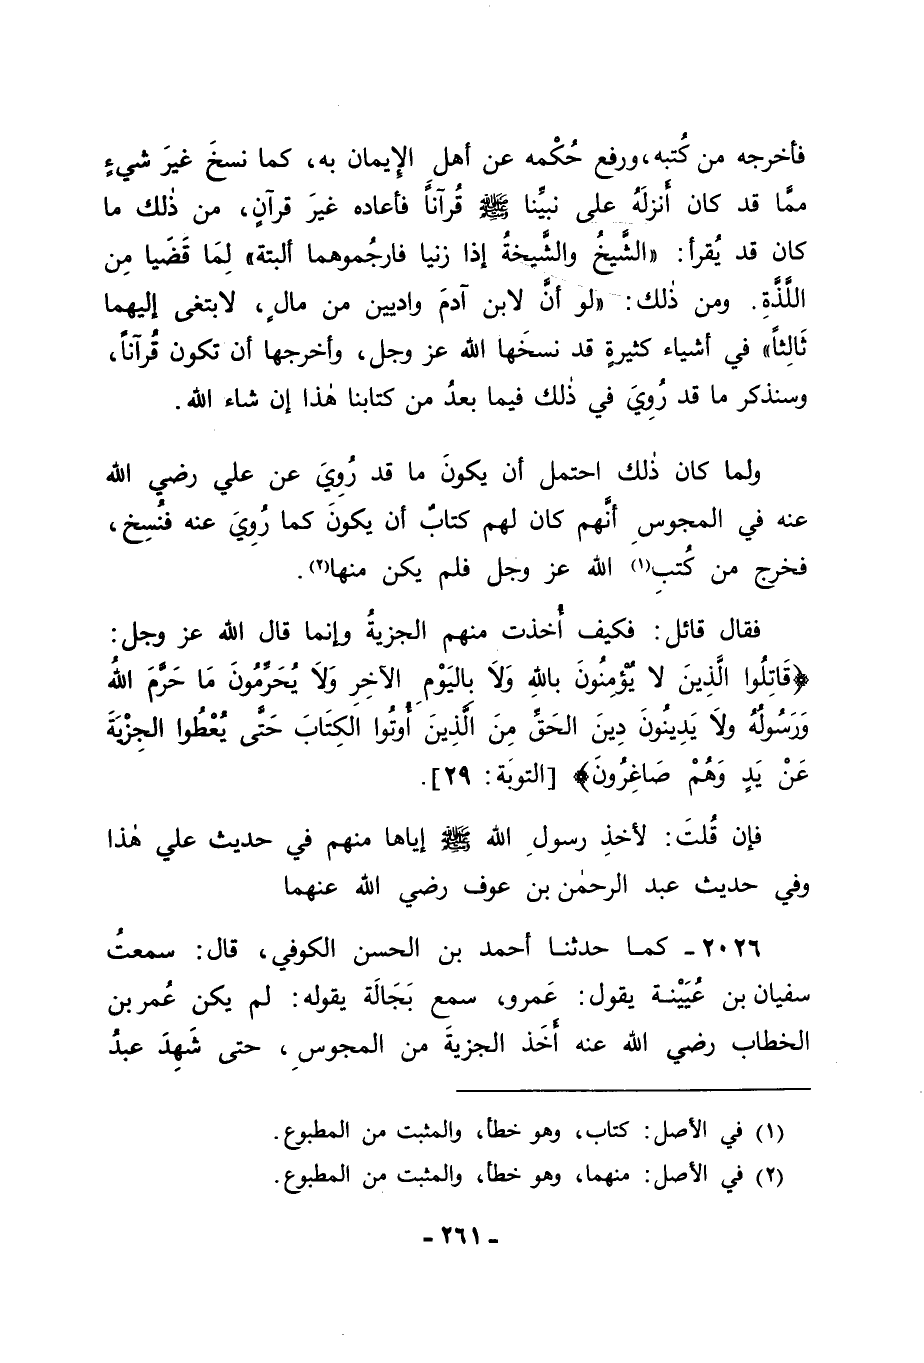 فأخرجه من كُتبه، ورفع حُكْمه عن أهل الإيمان به، كما نسخَ غيرَ شيءٍ
ممَّا قد كان أَنزلَهُ على نبيِّنا ﷺ قُرآناً فأعاده غيرَ قرآنٍ، من ذٰلك ما
كان قد يُقرأ: «الشَّيخُ والشَّيخةُ إذا زنيا فارجُموهما ألبتة» لِمَا قَضَيا مِن
اللَّذَّةِ. ومن ذٰلك: «لو أنَّ لابن آدمَ واديين من مالٍ، لابتغى إليهما
ثَالِثاً» في أشياء كثيرةٍ قد نسخَها الله عز وجل، وأخرجها أن تكون قُرآناً،
وسنذكر ما قد رُوِيَ في ذٰلك فيما بعدُ من كتابنا هٰذا إن شاء الله.
ولما كان ذٰلك احتمل أن يكونَ ما قد رُوِيَ عن علي رضي الله
عنه في المجوسِ أنَّهم كان لهم كتابٌ أن يكونَ كما رُوِيَ عنه فنُسِخ،
فخرج من كُتبِ(١) الله عز وجل فلم يكن منها(٢).
فقال قائل: فكيف أُخذت منهم الجزيةُ وإنما قال الله عز وجل:
﴿قَاتِلُوا الَّذِينَ لا يُؤمِنُونَ باللهِ وَلَا بِاليَوْمِ الآخِرِ وَلَا يُحَرِّمُونَ مَا حَرَّمَ اللهُ
وَرَسُولُهُ ولَا يَدِينُونَ دِينَ الحَقِّ مِنَ الَّذِينَ أُوتُوا الكِتَابَ حَتَّى يُعْطُوا الجِزْيَةَ
عَنْ يَدٍ وَهُمْ صَاغِرُونَ﴾ [التوبَة: ٢٩].
فإن قُلتَ: لأخذِ رسولِ الله ﷺ إياها منهم في حديث علي هٰذا
وفي حديث عبد الرحمٰن بن عوف رضي الله عنهما
٢٠٢٦ـ كما حدثنا أحمد بن الحسن الكوفي، قال: سمعتُ
سفيان بن عُيَيْنة يقول: عَمرو، سمع بَجَالَة يقوله: لم يكن عُمر بن
الخطاب رضي الله عنه أَخَذ الجزيةَ من المجوسِ، حتى شَهِدَ عبدُ
(١) في الأصل: كتاب، وهو خطأ، والمثبت من المطبوع.
(٢) في الأصل: منهما، وهو خطأ، والمثبت من المطبوع.
ـ ٢٦١ ـ